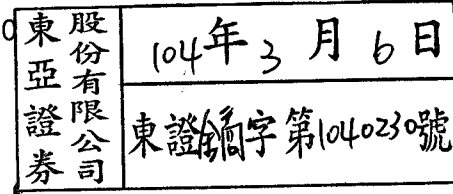 東亞證券
股份有限公司
104年3月6日
東證字第1040230號